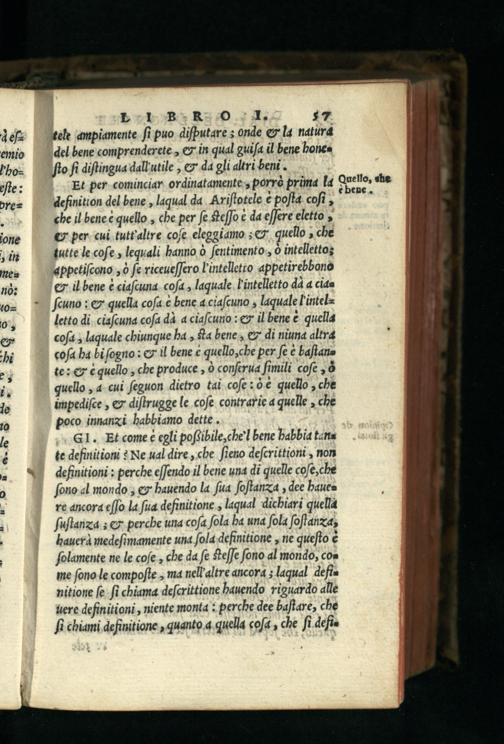 LIBRO I. 57
tele ampiamente si puo disputare; onde & la natura
del bene comprenderete, & in qual guisa il bene hone-
sto si distingua dall'utile, & da gli altri beni.
Et per cominciar ordinatamente, porrò prima la
definition del bene, laqual da Aristotele è posta cosi,
che il bene è quello, che per se stesso è da essere eletto,
& per cui tutt'altre cose eleggiamo; & quello, che
tutte le cose, lequali hanno ò sentimento, ò intelletto;
appetiscono, ò se riceuessero l'intelletto appetirebbono
& il bene è ciascuna cosa, laquale l'intelletto dà a cia-
scuno: & quella cosa è bene a ciascuno, laquale l'intel-
letto di ciascuna cosa dà a ciascuno: & il bene è quella
cosa, laquale chiunque ha, sta bene, & di niuna altra
cosa ha bisogno: & il bene è quello, che per se è bastan-
te: & è quello, che produce, ò conserua simili cose, ò
quello, a cui seguon dietro tai cose: ò è quello, che
impedisce, & distrugge le cose contrarie a quelle, che
poco innanzi habbiamo dette.
GI. Et come è egli possibile, che'l bene habbia tan-
te definitioni? Ne ual dire, che sieno descrittioni, non
definitioni: perche essendo il bene una di quelle cose, che
sono al mondo, & hauendo la sua sostanza, dee haue-
re ancora esso la sua definitione, laqual dichiari quella
sustanza; & perche una cosa sola ha una sola sostanza,
hauerà medesimamente una sola definitione, ne questo è
solamente ne le cose, che da se stesse sono al mondo, co-
me sono le composte, ma nell'altre ancora; laqual defi-
nitione se si chiama descrittione hauendo riguardo alle
uere definitioni, niente monta: perche dee bastare, che
si chiami definitione, quanto a quella cosa, che si defi-
Quello, che
è bene.